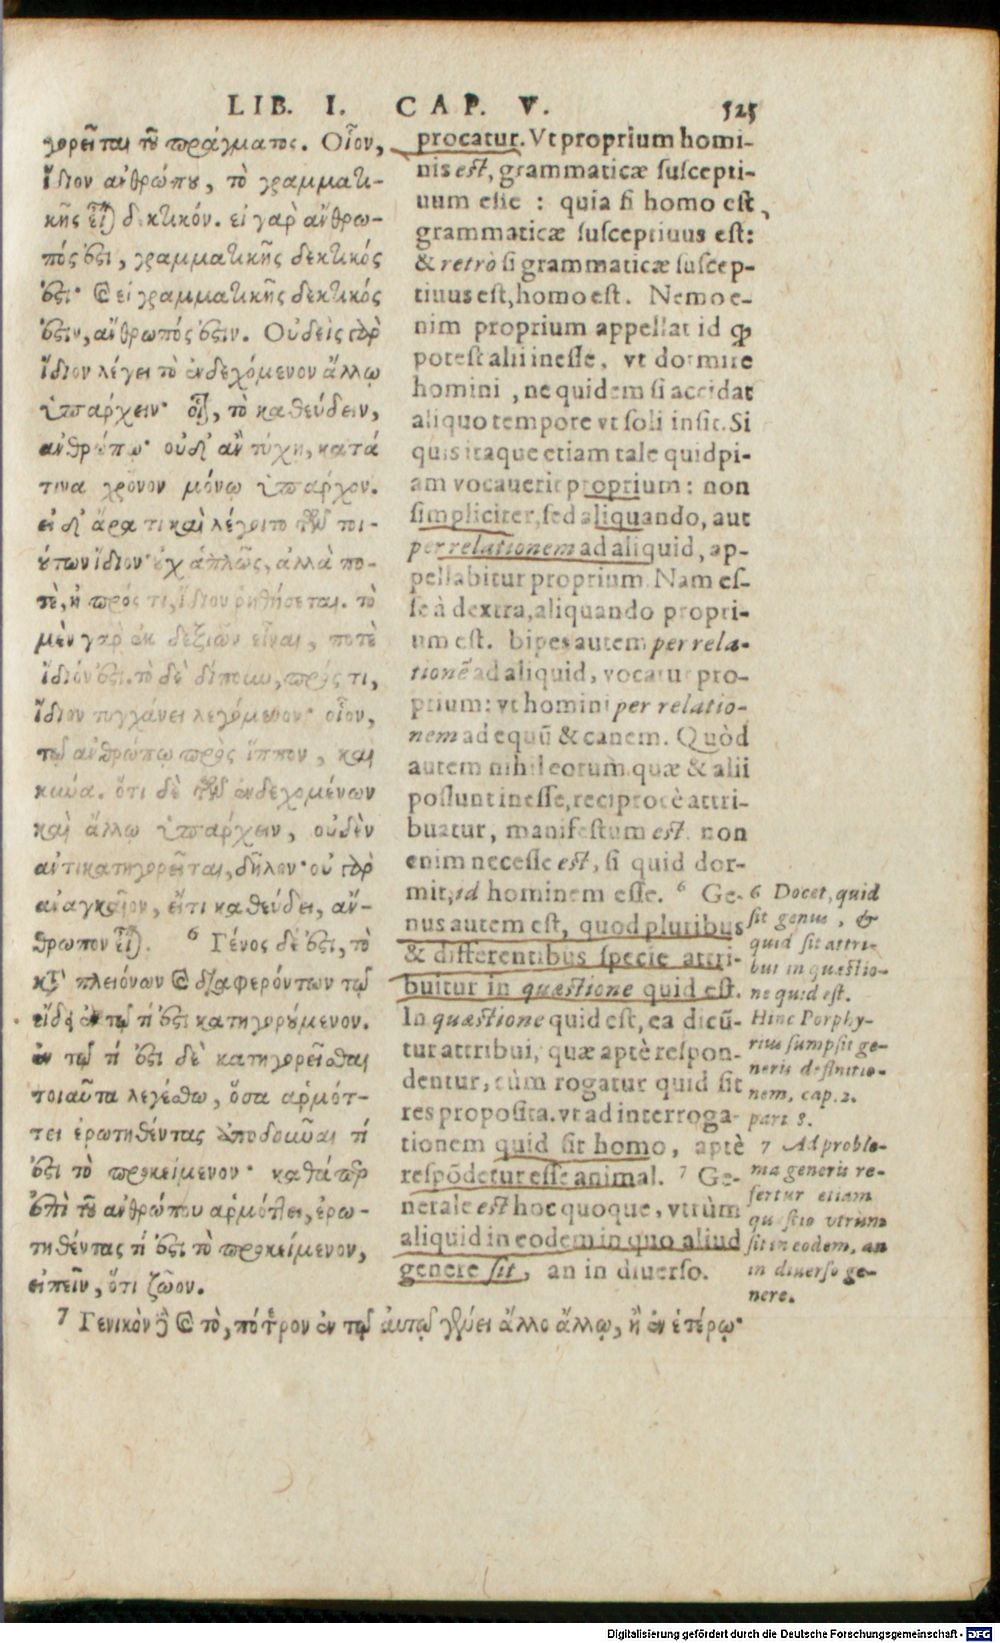 LIB. I. CAP. V. 525
γορεῖται τοῦ πράγματος. Οἷον,
ἴδιον ἀνθρώπου, τὸ γραμματι-
κῆς εἶναι δεκτικόν. εἰ γὰρ ἄνθρω-
πός ἐστι, γραμματικῆς δεκτικός
ἐστι· καὶ εἰ γραμματικῆς δεκτικός
ἐστιν, ἄνθρωπός ἐστιν. Οὐδεὶς γὰρ
ἴδιον λέγει τὸ ἐνδεχόμενον ἄλλῳ
ὑπάρχειν· οἷον, τὸ καθεύδειν,
ἀνθρώπῳ· οὐδ' ἂν τύχῃ, κατά
τινα χρόνον μόνῳ ὑπάρχον.
εἰ δ' ἄρα τι καὶ λέγοιτο τῶν τοι-
ούτων ἴδιον· οὐχ ἁπλῶς, ἀλλὰ πο-
τὲ, ἢ πρός τι, ἴδιον ῥηθήσεται. τὸ
μὲν γὰρ ἐκ δεξιῶν εἶναι, ποτὲ
ἴδιόν ἐστι. τὸ δὲ δίπουν, πρός τι,
ἴδιον τυγχάνει λεγόμενον· οἷον,
τῷ ἀνθρώπῳ πρὸς ἵππον, καὶ
κύνα. ὅτι δὲ τῶν ἐνδεχομένων
καὶ ἄλλῳ ὑπάρχειν, οὐδὲν
ἀντικατηγορεῖται, δῆλον· οὐ γὰρ
ἀναγκαῖον, εἴ τι καθεύδει, ἄν-
θρωπον εἶναι. 6 Γένος δέ ἐστι, τὸ
κατὰ πλειόνων καὶ διαφερόντων τῷ
εἴδει ἐν τῷ τί ἐστι κατηγορούμενον.
ἐν τῷ τί ἐστι δὲ κατηγορεῖσθαι
τοιαῦτα λεγέσθω, ὅσα ἁρμότ-
τει ἐρωτηθέντας ἀποδοῦναι τί
ἐστι τὸ προκείμενον· καθάπερ
ἐπὶ τοῦ ἀνθρώπου ἁρμόττει, ἐρω-
τηθέντας τί ἐστι τὸ προκείμενον,
εἰπεῖν, ὅτι ζῶον.
7 Γενικὸν δὲ καὶ τὸ, πότερον ἐν τῷ αὐτῷ γένει ἄλλο ἄλλῳ, ἢ ἐν ἑτέρῳ·
procatur. Vt proprium homi-
nis est, grammaticæ suscepti-
uum esse : quia si homo est,
grammaticæ susceptiuus est:
& retrò si grammaticæ suscep-
tiuus est, homo est. Nemo e-
nim proprium appellat id ꝙ
potest alii inesse, vt dormire
homini , ne quidem si accidat
aliquo tempore vt soli insit. Si
quis itaque etiam tale quidpi-
am vocauerit proprium: non
simpliciter, sed aliquando, aut
per relationem ad aliquid, ap-
pellabitur proprium. Nam es-
se à dextra, aliquando propri-
um est. bipes autem per rela-
tionē ad aliquid, vocatur pro-
prium: vt homini per relatio-
nem ad equū & canem. Quòd
autem nihil eorum quæ & alii
possunt inesse, reciprocè attri-
buatur, manifestum est. non
enim necesse est, si quid dor-
mit, id hominem esse. 6 Ge-
nus autem est, quod pluribus
& differentibus specie attri-
buitur in quæstione quid est.
In quæstione quid est, ea dicū-
tur attribui, quæ aptè respon-
dentur, cùm rogatur quid sit
res proposita. vt ad interroga-
tionem quid sit homo, aptè
respōdetur esse animal. 7 Ge-
nerale est hoc quoque, vtrùm
aliquid in eodem in quo aliud
genere sit, an in diuerso.
6 Docet, quid
sit genus, &
quid sit attri-
bui in quæstio-
ne quid est.
Hinc Porphy-
rius sumpsit ge-
neris definitio-
nem, cap. 2.
part 8.
7 Ad proble-
ma generis re-
fertur etiam
quæstio vtrum
sit in eodem, an
in diuerso ge-
nere.
Digitalisierung gefördert durch die Deutsche Forschungsgemeinschaft - DFG